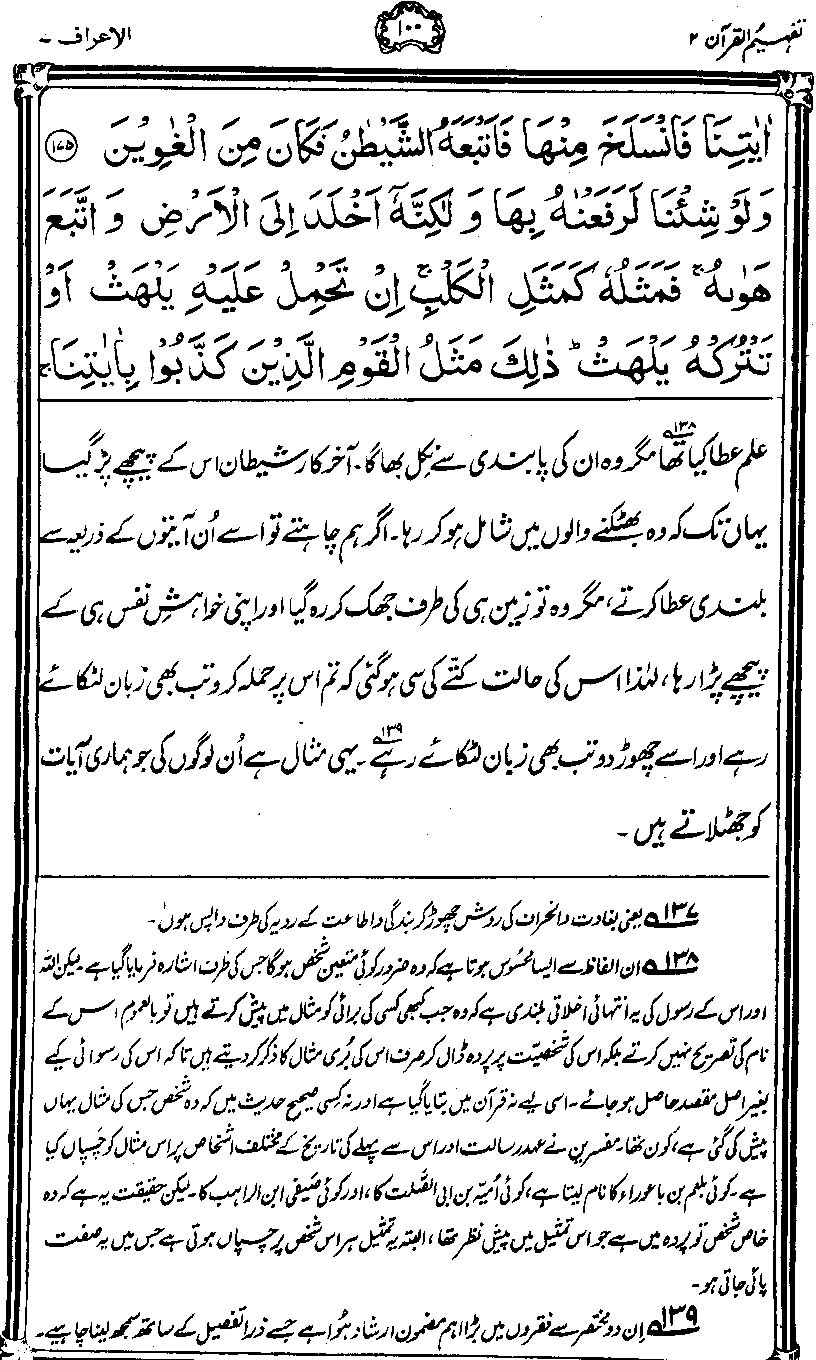 تفہیم القرآن ۲
۱۰۰
الاعراف ۷
اٰیٰتِنَا فَانْسَلَخَ مِنْهَا فَاَتْبَعَهُ الشَّیْطٰنُ فَکَانَ مِنَ الْغٰوِیْنَ ۱۷۵
وَلَوْ شِئْنَا لَرَفَعْنٰهُ بِهَا وَ لٰکِنَّهٗۤ اَخْلَدَ اِلَی الْاَرْضِ وَ اتَّبَعَ
هَوٰىهُ ۚ فَمَثَلُهٗ کَمَثَلِ الْکَلْبِ ۚ اِنْ تَحْمِلْ عَلَیْهِ یَلْهَثْ اَوْ
تَتْرُکْهُ یَلْهَثْ ؕ ذٰلِکَ مَثَلُ الْقَوْمِ الَّذِیْنَ کَذَّبُوْا بِاٰیٰتِنَا ۚ
علم عطا کیا تھا ۱۳۸ مگر وہ ان کی پابندی سے نکل بھاگا۔ آخر کار شیطان اس کے پیچھے پڑ گیا
یہاں تک کہ وہ بھٹکنے والوں میں شامل ہو کر رہا۔ اگر ہم چاہتے تو اسے اُن آیتوں کے ذریعہ سے
بلندی عطا کرتے، مگر وہ تو زمین ہی کی طرف جھک کر رہ گیا اور اپنی خواہشِ نفس ہی کے
پیچھے پڑا رہا، لہٰذا اس کی حالت کتے کی سی ہو گئی کہ تم اس پر حملہ کرو تب بھی زبان لٹکائے
رہے اور اسے چھوڑ دو تب بھی زبان لٹکائے رہے ۱۳۹۔ یہی مثال ہے اُن لوگوں کی جو ہماری آیات
کو جھٹلاتے ہیں۔
۱۳۷ یعنی بغاوت و انحراف کی روش چھوڑ کر بندگی و اطاعت کے رویہ کی طرف واپس ہوں۔
۱۳۸ ان الفاظ سے ایسا محسوس ہوتا ہے کہ وہ ضرور کوئی متعین شخص ہوگا جس کی طرف اشارہ فرمایا گیا ہے۔ لیکن اللہ
اور اس کے رسول کی یہ انتہائی اخلاقی بلندی ہے کہ وہ جب کبھی کسی کی برائی کو مثال میں پیش کرتے ہیں تو بالعموم اس کے
نام کی تصریح نہیں کرتے بلکہ اس کی شخصیت پر پردہ ڈال کر صرف اس کی بُری مثال کا ذکر کر دیتے ہیں تاکہ اس کی رسوائی کیے
بغیر اصل مقصد حاصل ہو جائے۔ اسی لیے نہ قرآن میں بتایا گیا ہے اور نہ کسی صحیح حدیث میں کہ وہ شخص جس کی مثال یہاں
پیش کی گئی ہے، کون تھا۔ مفسرین نے عہد رسالت اور اس سے پہلے کی تاریخ کے مختلف اشخاص پر اس مثال کو چسپاں کیا
ہے۔ کوئی بلعم بن باعوراء کا نام لیتا ہے، کوئی اُمیّہ بن ابی الصَّلت کا، اور کوئی صَیفی ابن الراہب کا۔ لیکن حقیقت یہ ہے کہ وہ
خاص شخص تو پردہ میں ہے جو اس تمثیل میں پیش نظر تھا، البتہ یہ تمثیل ہر اس شخص پر چسپاں ہوتی ہے جس میں یہ صفت
پائی جاتی ہو۔
۱۳۹ اِن دو مختصر سے فقروں میں بڑا اہم مضمون ارشاد ہُوا ہے جسے ذرا تفصیل کے ساتھ سمجھ لینا چاہیے۔